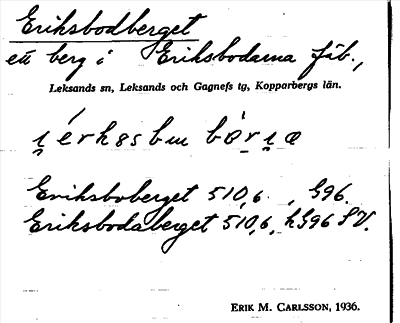 Eriksbodberget
ett berg i Eriksbodarna fäb.,
Leksands sn, Leksands och Gagnefs tg, Kopparbergs län.
Eriksboberget 510,6, G96.
Eriksbodaberget 510,6, hG96 SV.
ERIK M. CARLSSON, 1936.